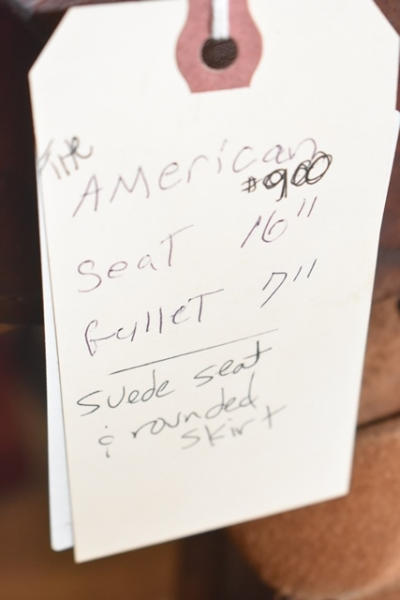 AMerican
#900
SeaT 16"
GulleT 7"
suede seat
& rounded
skirt